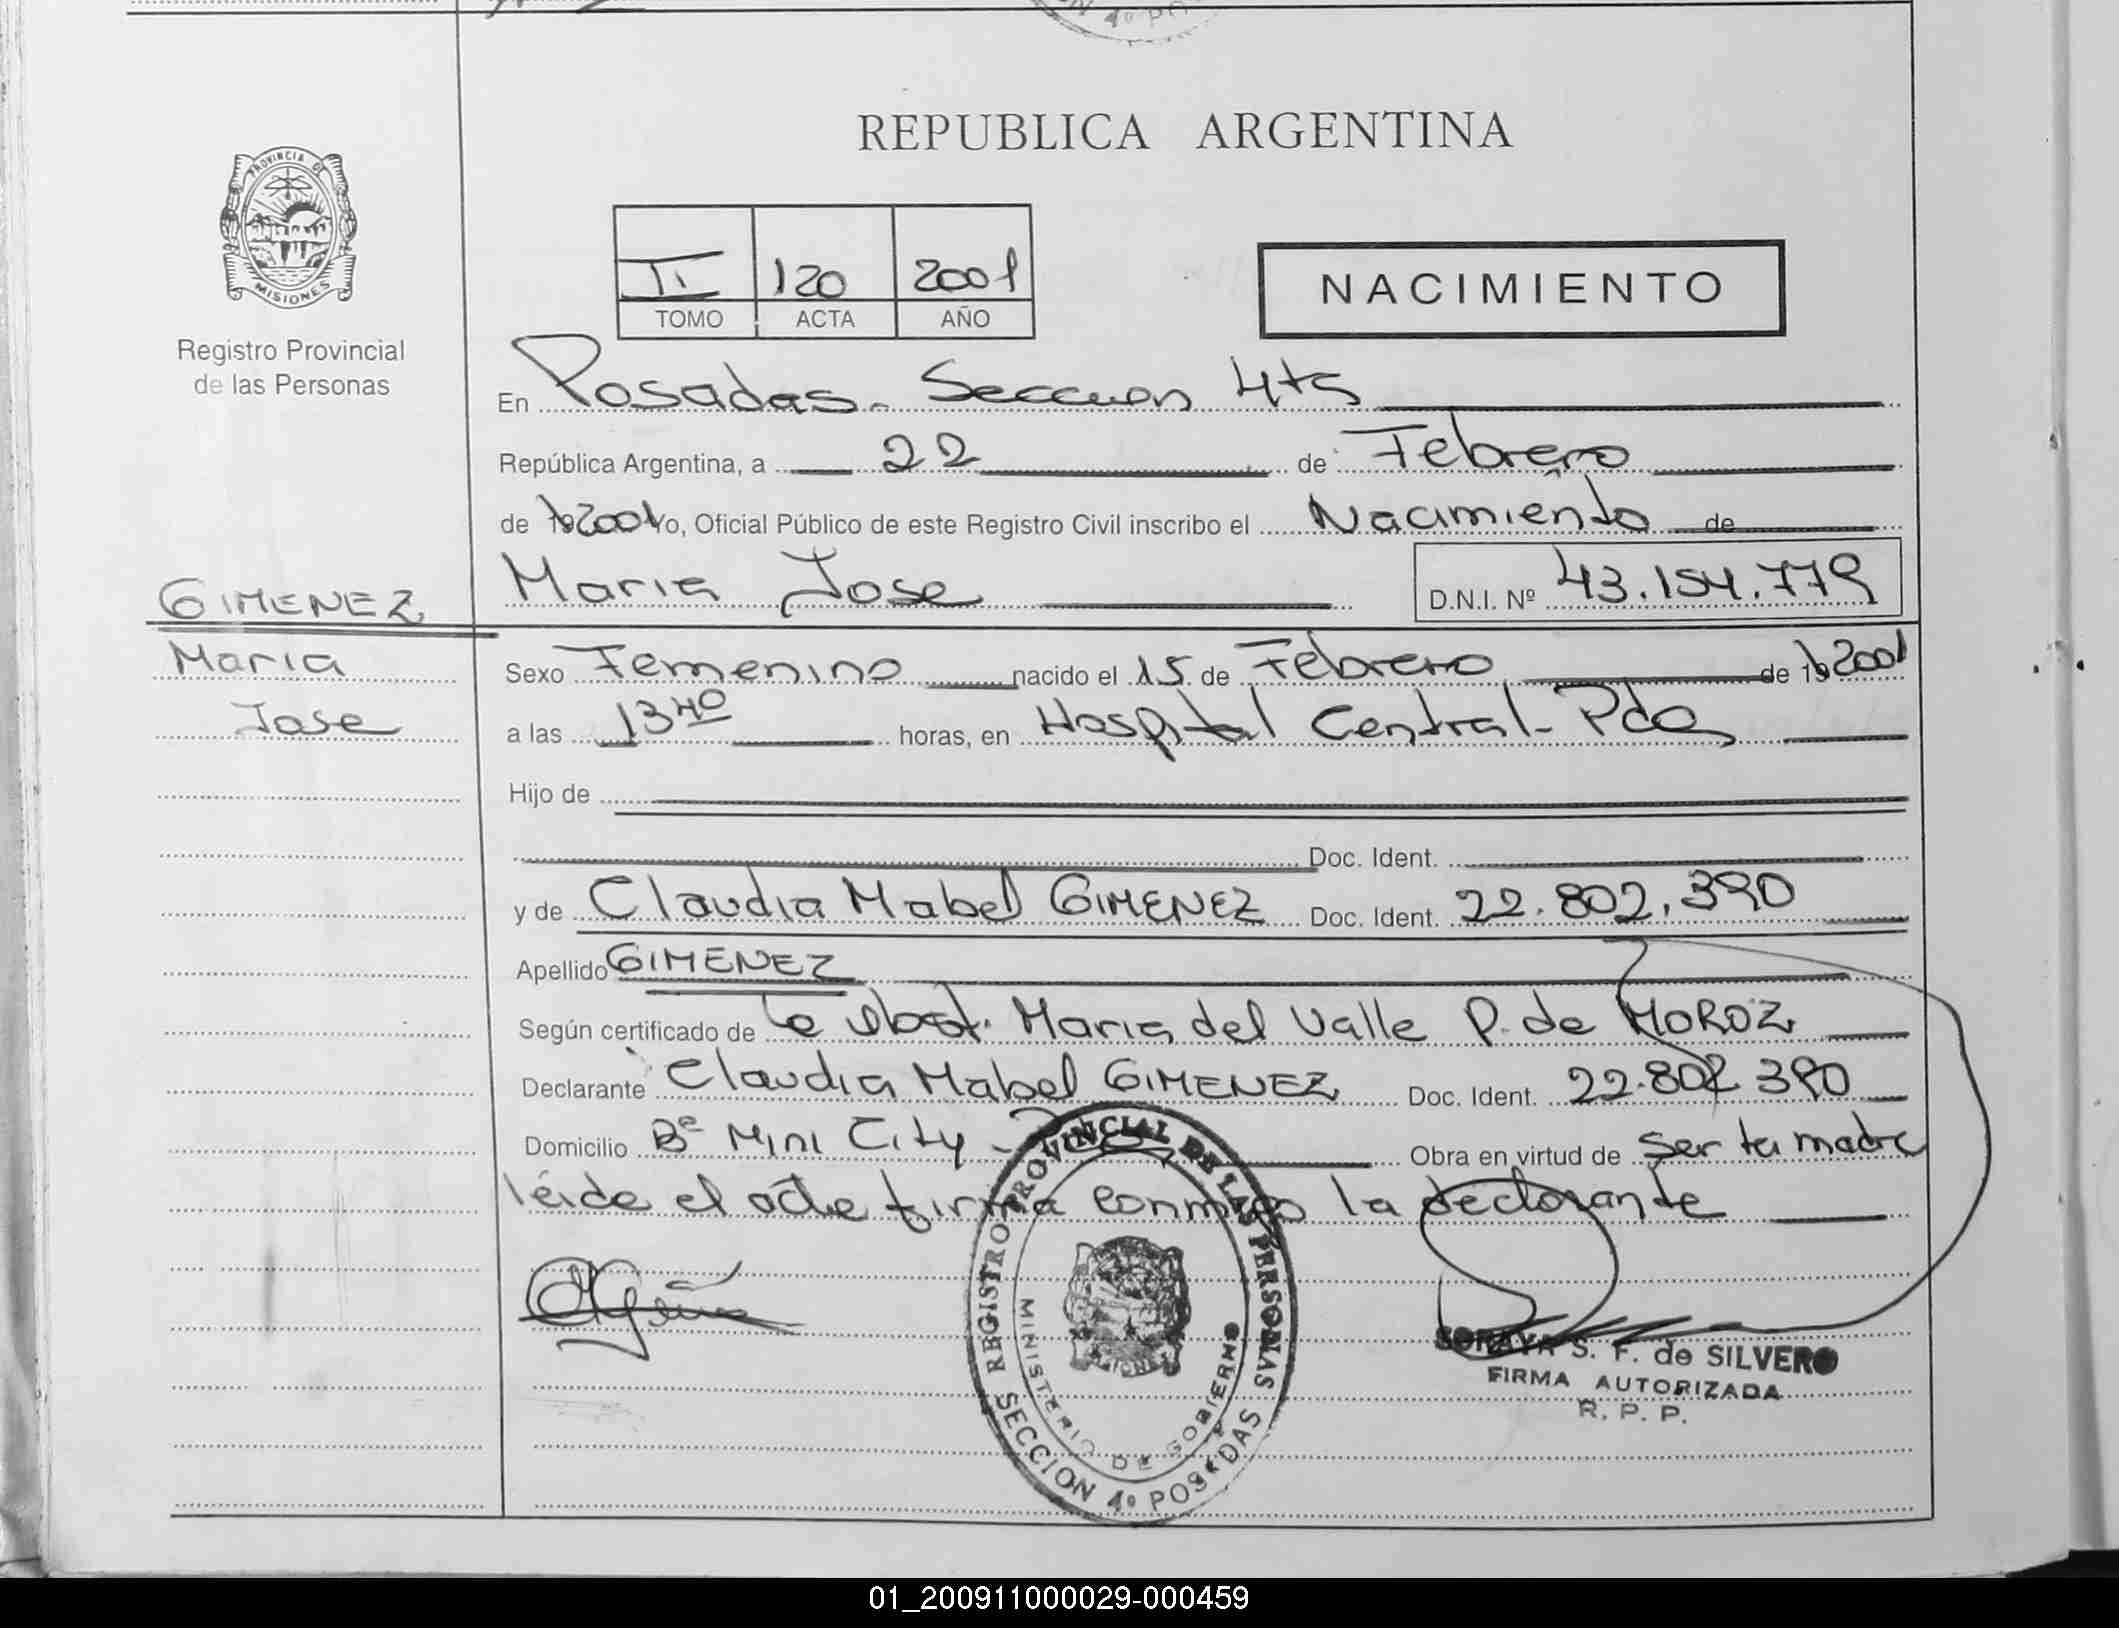 REPUBLICA ARGENTINA
PROVINCIA DE MISIONES
Registro Provincial
de las Personas
II 120 2001
TOMO ACTA AÑO
NACIMIENTO
En Posadas. Seccion 4ta
República Argentina, a 22 de Febrero
de 2001 Yo, Oficial Público de este Registro Civil inscribo el Nacimiento de
Maria Jose D.N.I. Nº 43.154.779
GIMENEZ
Maria
Jose
Sexo Femenino nacido el 15 de Febrero de 2001
a las 13 40 horas, en Hospital Central - Pdas
Hijo de
Doc. Ident.
y de Claudia Mabel GIMENEZ Doc. Ident. 22.802.390
Apellido GIMENEZ
Según certificado de la obst. Maria del Valle P. de MOROZ
Declarante Claudia Mabel GIMENEZ Doc. Ident. 22.802 390
Domicilio Bº Mini City Obra en virtud de ser la madre
leida el acta firma conmigo la declarante
REGISTRO PROVINCIAL DE LAS PERSONAS
MINISTERIO DE GOBIERNO
MISIONES
SECCION 4º POSADAS
SORAYA S. F. de SILVERO
FIRMA AUTORIZADA
R. P. P.
01_200911000029-000459